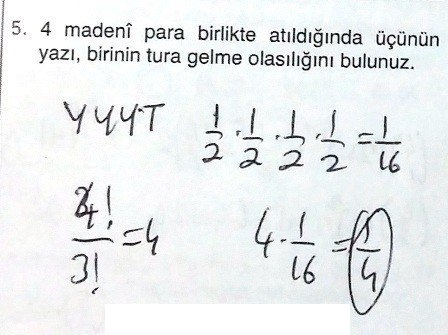 5. 4 madenî para birlikte atıldığında üçünün
yazı, birinin tura gelme olasılığını bulunuz.
YYYT 1/2 · 1/2 · 1/2 · 1/2 = 1/16
4!/3! = 4
4 · 1/16 = 1/4